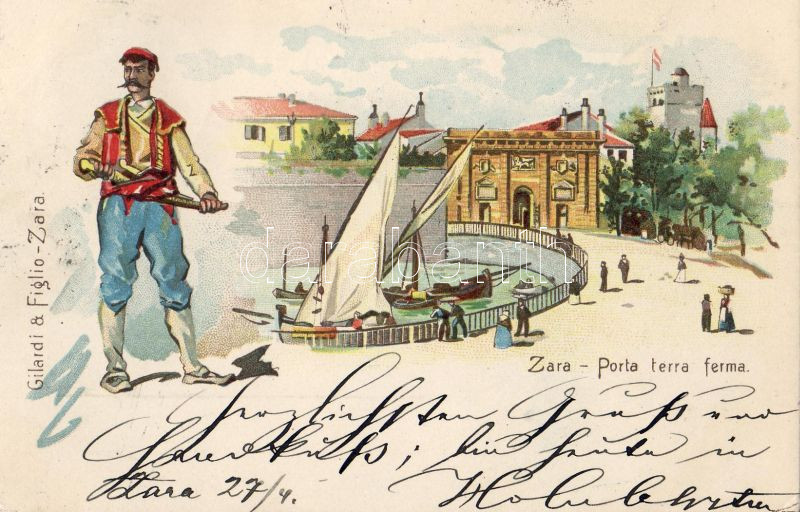 Gilardi & Figlio - Zara.
darabanth
Zara - Porta terra ferma.
Herzlichsten Gruß und
Handkuß; bin heute in
Zara 27/4.